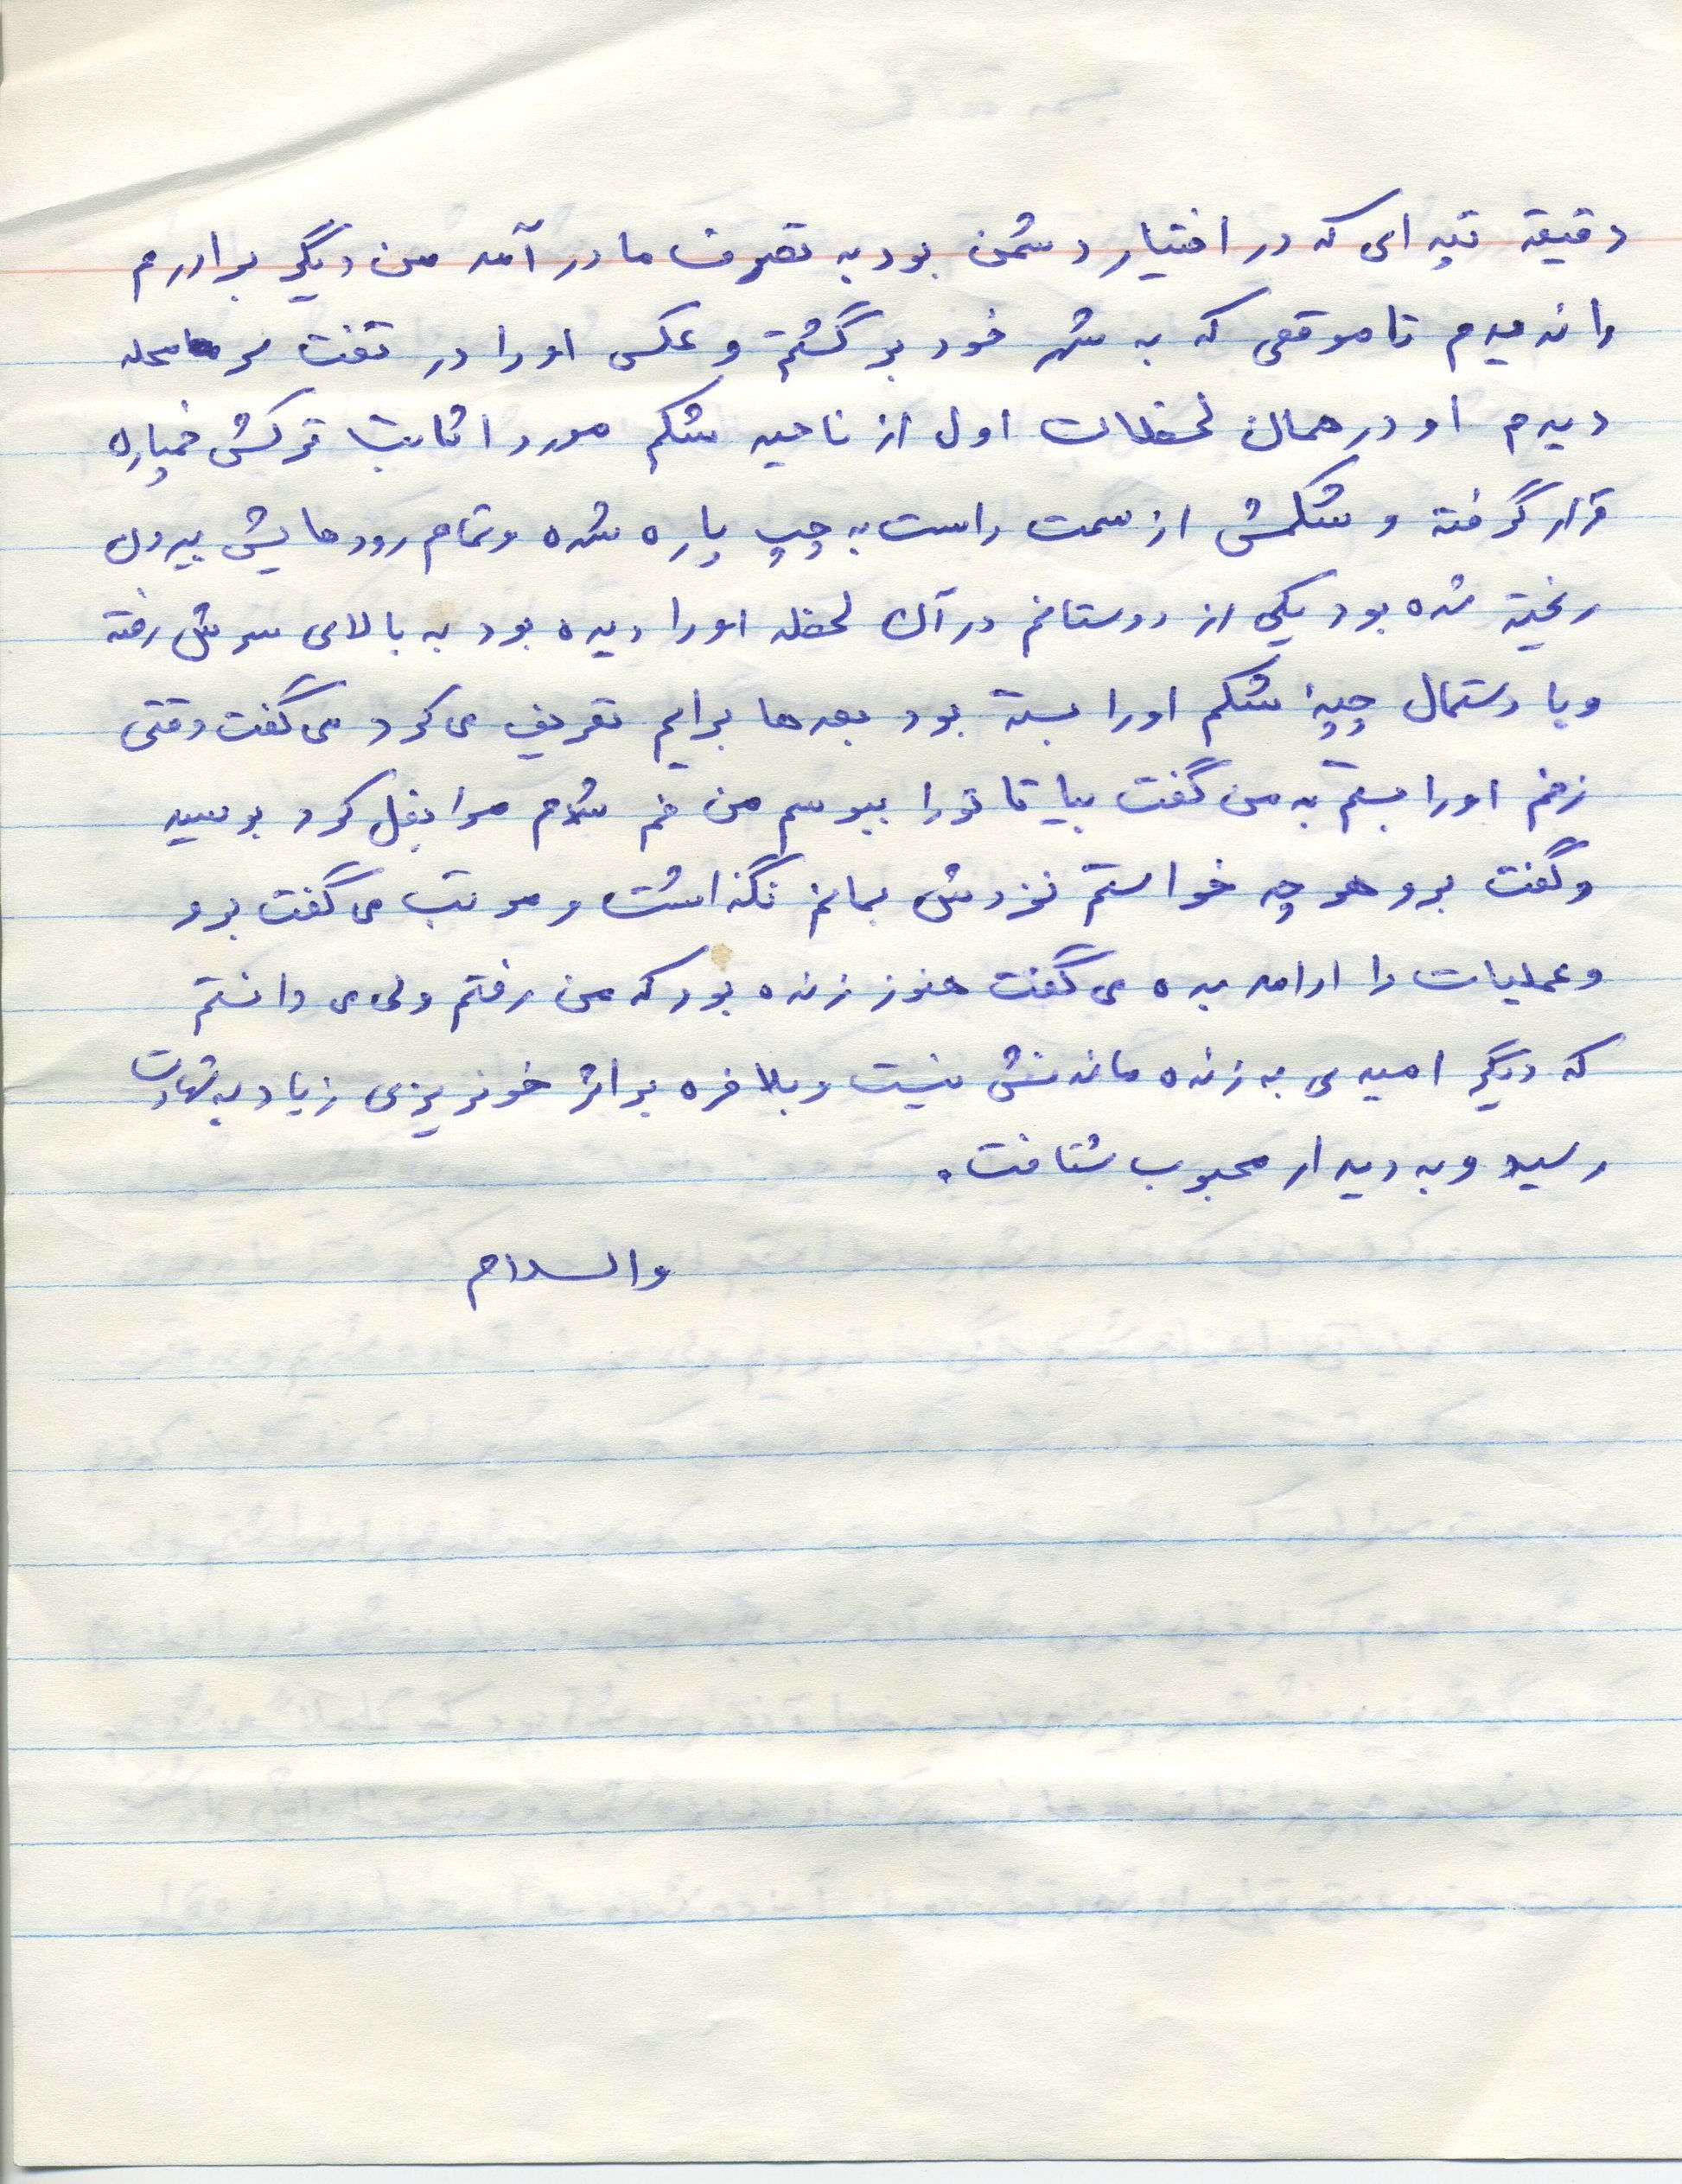 دقیقه تپه ای که در اختیار دشمن بود به تصرف ما در آمد من دیگر برادرم
را ندیدم تا موقعی که به شهر خود برگشتم و عکس او را در تفت سر محله
دیدم او در همان لحظات اول از ناحیه شکم مورد اثابت ترکش خمپاره
قرار گرفته و شکمش از سمت راست به چپ پاره شده و تمام رودهایش بیرون
ریخته شده بود یکی از دوستانم در آن لحظه او را دیده بود به بالای سرش رفته
و با دستمال چپیه شکم او را بسته بود بعدها برایم تعریف می کرد می گفت وقتی
زخم او را بستم به من گفت بیا تا تو را ببوسم من خم شدم مرا بغل کرد بوسید
و گفت برو هر چه خواستم نزدش بمانم نگذاشت و مرتب می گفت برو
و عملیات را ادامه بده می گفت هنوز زنده بود که من رفتم ولی می دانستم
که دیگر امیدی به زنده ماندنش نیست و بلاخره بر اثر خونریزی زیاد به شهادت
رسید و به دیدار محبوب شتافت.
والسلام